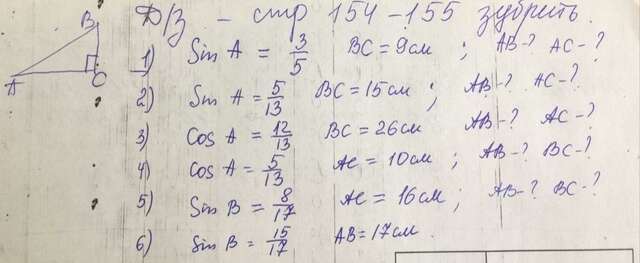 Д/З - стр 154-155 зубрить.
B
A
C
1) Sin A = 3/5 BC = 9см ; AB-? AC-?
2) Sin A = 5/13 BC = 15см ; AB-? AC-?
3) cos A = 12/13 BC = 26см AB-? AC-?
4) cos A = 5/13 AC = 10см ; AB-? BC-?
5) Sin B = 8/17 AC = 16см ; AB-? BC-?
6) Sin B = 15/17 AB = 17см.